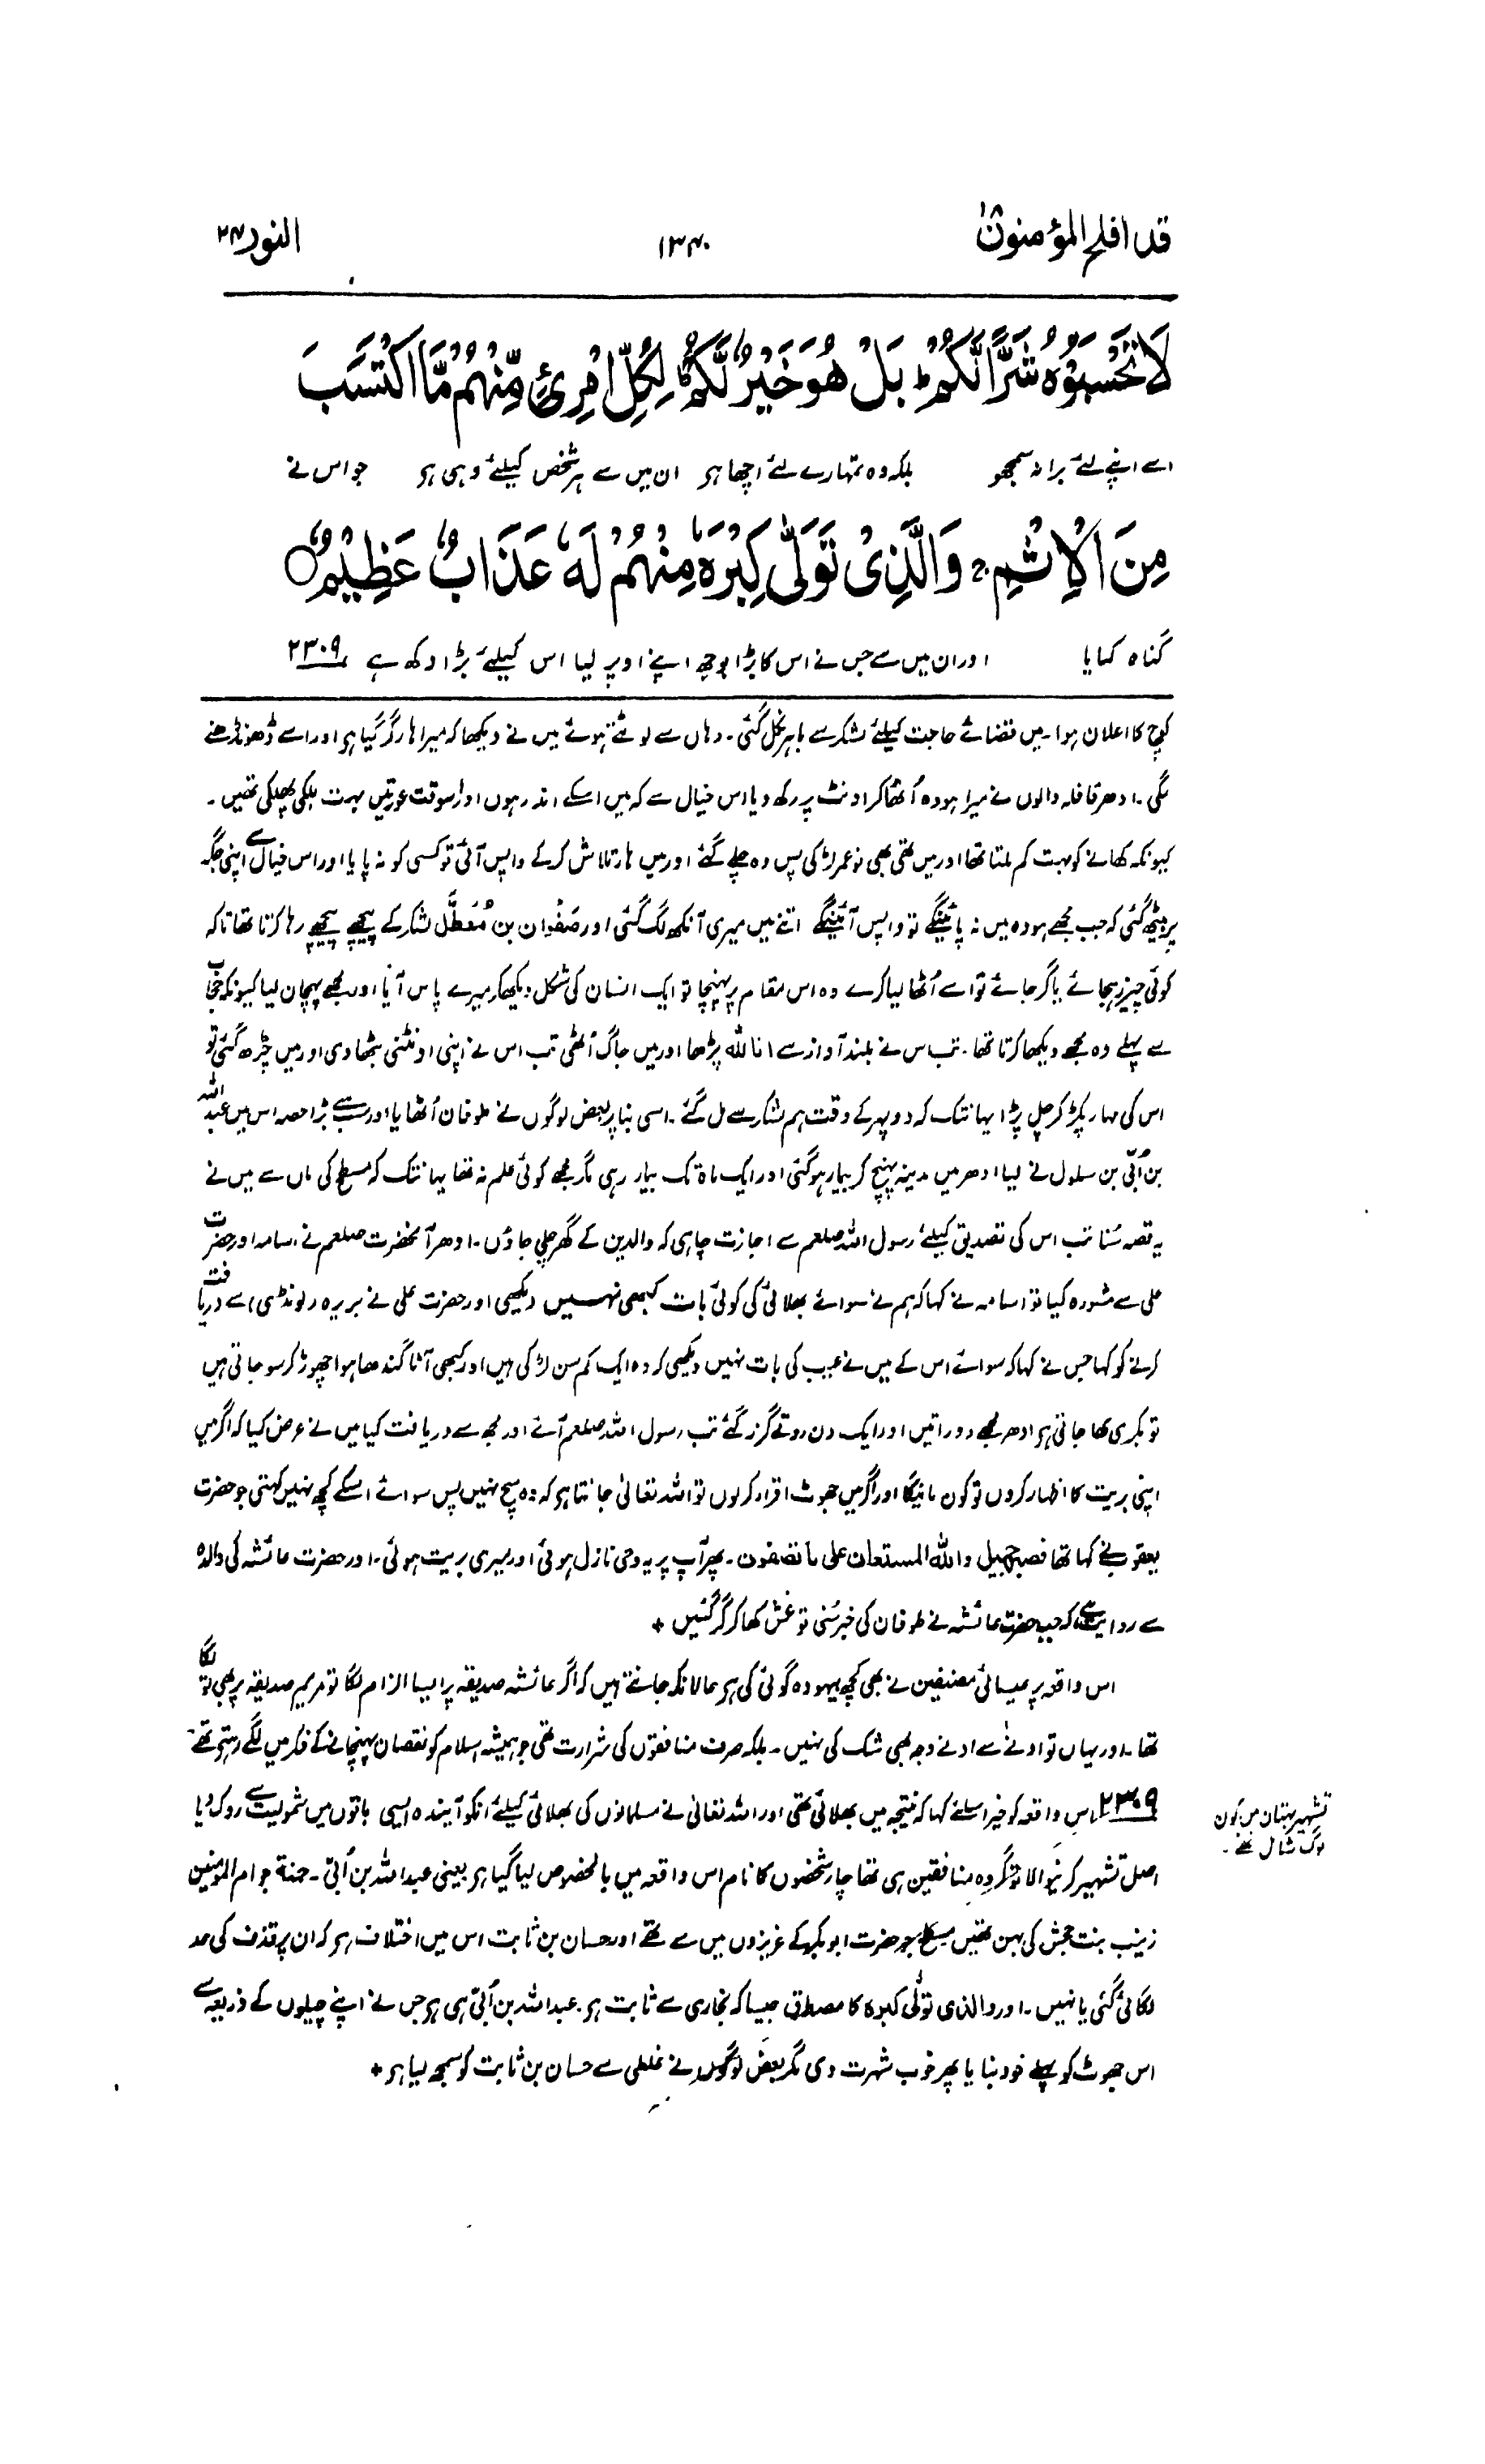 قد افلح المؤمنون ۱۸
۱۳۴۰
النور ۲۴
لَا تَحْسَبُوْهُ شَرًّا لَّكُمْ ط بَلْ هُوَ خَيْرٌ لَّكُمْ ط لِكُلِّ امْرِئٍ مِّنْهُمْ مَّا اكْتَسَبَ
اسے اپنے لئے برا نہ سمجھو بلکہ وہ تمہارے لئے اچھا ہو ان میں سے ہر شخص کیلئے وہی ہو جو اس نے
مِنَ الْاِثْمِ ۚ وَالَّذِىْ تَوَلّٰى كِبْرَهٗ مِنْهُمْ لَهٗ عَذَابٌ عَظِيْمٌ ○
گناہ کمایا اور ان میں سے جس نے اس کا بڑا بوجھ اپنے اوپر لیا اس کیلئے بڑا دکھ ہے ۲۳۰۹
کوچ کا اعلان ہوا۔ میں قضائے حاجت کیلئے لشکر سے باہر نکل گئی۔ وہاں سے لوٹتے ہوئے میں نے دیکھا کہ میرا ہار گر گیا ہو اور اسے ڈھونڈھنے
لگی۔ ادھر قافلہ والوں نے میرا ہودہ اُٹھا کر اونٹ پر رکھ دیا اس خیال سے کہ میں اسکے اندر ہوں اور اسوقت عورتیں بہت ہلکی پھلکی تھیں۔
کیونکہ کھانے کو بہت کم ملتا تھا اور میں تھی بھی نو عمر لڑکی پس وہ چلے گئے اور میں ہار تلاش کر کے واپس آئی تو کسی کو نہ پایا اور اس خیال سے اپنی جگہ
پر بیٹھ گئی کہ جب مجھے ہودہ میں نہ پائینگے تو واپس آئینگے اتنے میں میری آنکھ لگ گئی اور صَفْوان بن مُعَطَّل لشکر کے پیچھے پیچھے رہا کرتا تھا تاکہ
کوئی چیز رہجائے یا گر جائے تو اسے اُٹھا لیا کرے وہ اس مقام پر پہنچا تو ایک انسان کی شکل دیکھکر میرے پاس آیا اور مجھے پہچان لیا کیونکہ حجاب
سے پہلے وہ مجھے دیکھا کرتا تھا۔ تب اس نے بلند آواز سے انا للہ پڑھا اور میں جاگ اُٹھی تب اس نے اپنی اونٹنی بٹھا دی اور میں چڑھ گئی تو
اس کی مہار پکڑ کر چل پڑا یہانتک کہ دوپہر کے وقت ہم لشکر سے مل گئے۔ اسی بنا پر بعض لوگوں نے طوفان اُٹھایا اور سب سے بڑا حصہ اس میں عبد اللہ
بن اُبَیّ بن سلول نے لیا ادھر میں مدینہ پہنچ کر بیمار ہو گئی اور ایک ماہ تک بیمار رہی مگر مجھے کوئی علم نہ تھا یہانتک کہ مسطح کی ماں سے میں نے
یہ قصہ سُنا تب اس کی تصدیق کیلئے رسول اللہ صلعم سے اجازت چاہی کہ والدین کے گھر چلی جاؤں۔ ادھر آنحضرت صلعم نے اسامہ اور حضرت
علی سے مشورہ کیا تو اسامہ نے کہا کہ ہم نے سوائے بھلائی کی کوئی بات کبھی نہیں دیکھی اور حضرت علی نے بریرہ (لونڈی) سے دریافت
کرنے کو کہا جس نے کہا کہ سوائے اس کے میں نے عیب کی بات نہیں دیکھی کہ وہ ایک کم سن لڑکی ہیں اور کبھی آٹا گندھا ہوا چھوڑ کر سو جاتی ہیں
تو بکری کھا جاتی ہو ادھر مجھے دو راتیں اور ایک دن روتے گزر گئے تب رسول اللہ صلعم آئے اور مجھ سے دریافت کیا میں نے عرض کیا کہ اگر میں
اپنی بریت کا اظہار کروں تو کون مانیگا اور اگر میں جھوٹ اقرار کر لوں تو اللہ تعالیٰ جانتا ہو کہ وہ سچ نہیں پس سوائے اسکے کچھ نہیں کہتی جو حضرت
یعقوب نے کہا تھا فصبر جمیل واللہ المستعان علی ما تصفون۔ پھر آپ پر یہ وحی نازل ہوئی اور میری بریت ہوئی۔ اور حضرت عائشہ کی والدہ
سے روایت ہے کہ جب حضرت عائشہ نے طوفان کی خبر سُنی تو غش کھا کر گر گئیں +
اس واقعہ پر عیسائی مصنفین نے بھی کچھ بیہودہ گوئی کی ہو حالانکہ جانتے ہیں کہ اگر عائشہ صدیقہ پر ایسا الزام لگا تو مریم صدیقہ پر بھی تو لگا
تھا۔ اور یہاں تو ادنےٰ سے ادنےٰ وجہ بھی شک کی نہیں۔ بلکہ صرف منافقوں کی شرارت تھی جو ہمیشہ اسلام کو نقصان پہنچانے کے فکر میں لگے رہتے تھے
۲۳۰۹ اس واقعہ کو خیر اسلئے کہا کہ نتیجہ میں بھلائی تھی اور اللہ تعالیٰ نے مسلمانوں کی بھلائی کیلئے انکو آیندہ ایسی باتوں میں شمولیت سے روک دیا
اصل تشہیر کرنیوالا تو گروہ منافقین ہی تھا چار شخصوں کا نام اس واقعہ میں بالخصوص لیا گیا ہو یعنی عبد اللہ بن اُبَیّ۔ حمنة جو ام المومنین
زینب بنت جحش کی بہن تھیں مسطح جو حضرت ابوبکر کے عزیزوں میں سے تھے اور حسان بن ثابت اس میں اختلاف ہو کہ ان پر قذف کی حد
لگائی گئی یا نہیں۔ اور والذی تولّٰی کبرہ کا مصداق جیسا کہ بخاری سے ثابت ہو۔ عبد اللہ بن اُبَیّ ہی ہو جس نے اپنے چیلوں کے ذریعہ سے
اس جھوٹ کو پہلے خود بنایا پھر خوب شہرت دی مگر بعض لوگوں نے غلطی سے حسان بن ثابت کو سمجھ لیا ہو +
تشہیر بہتان میں کون
لوگ شامل تھے۔